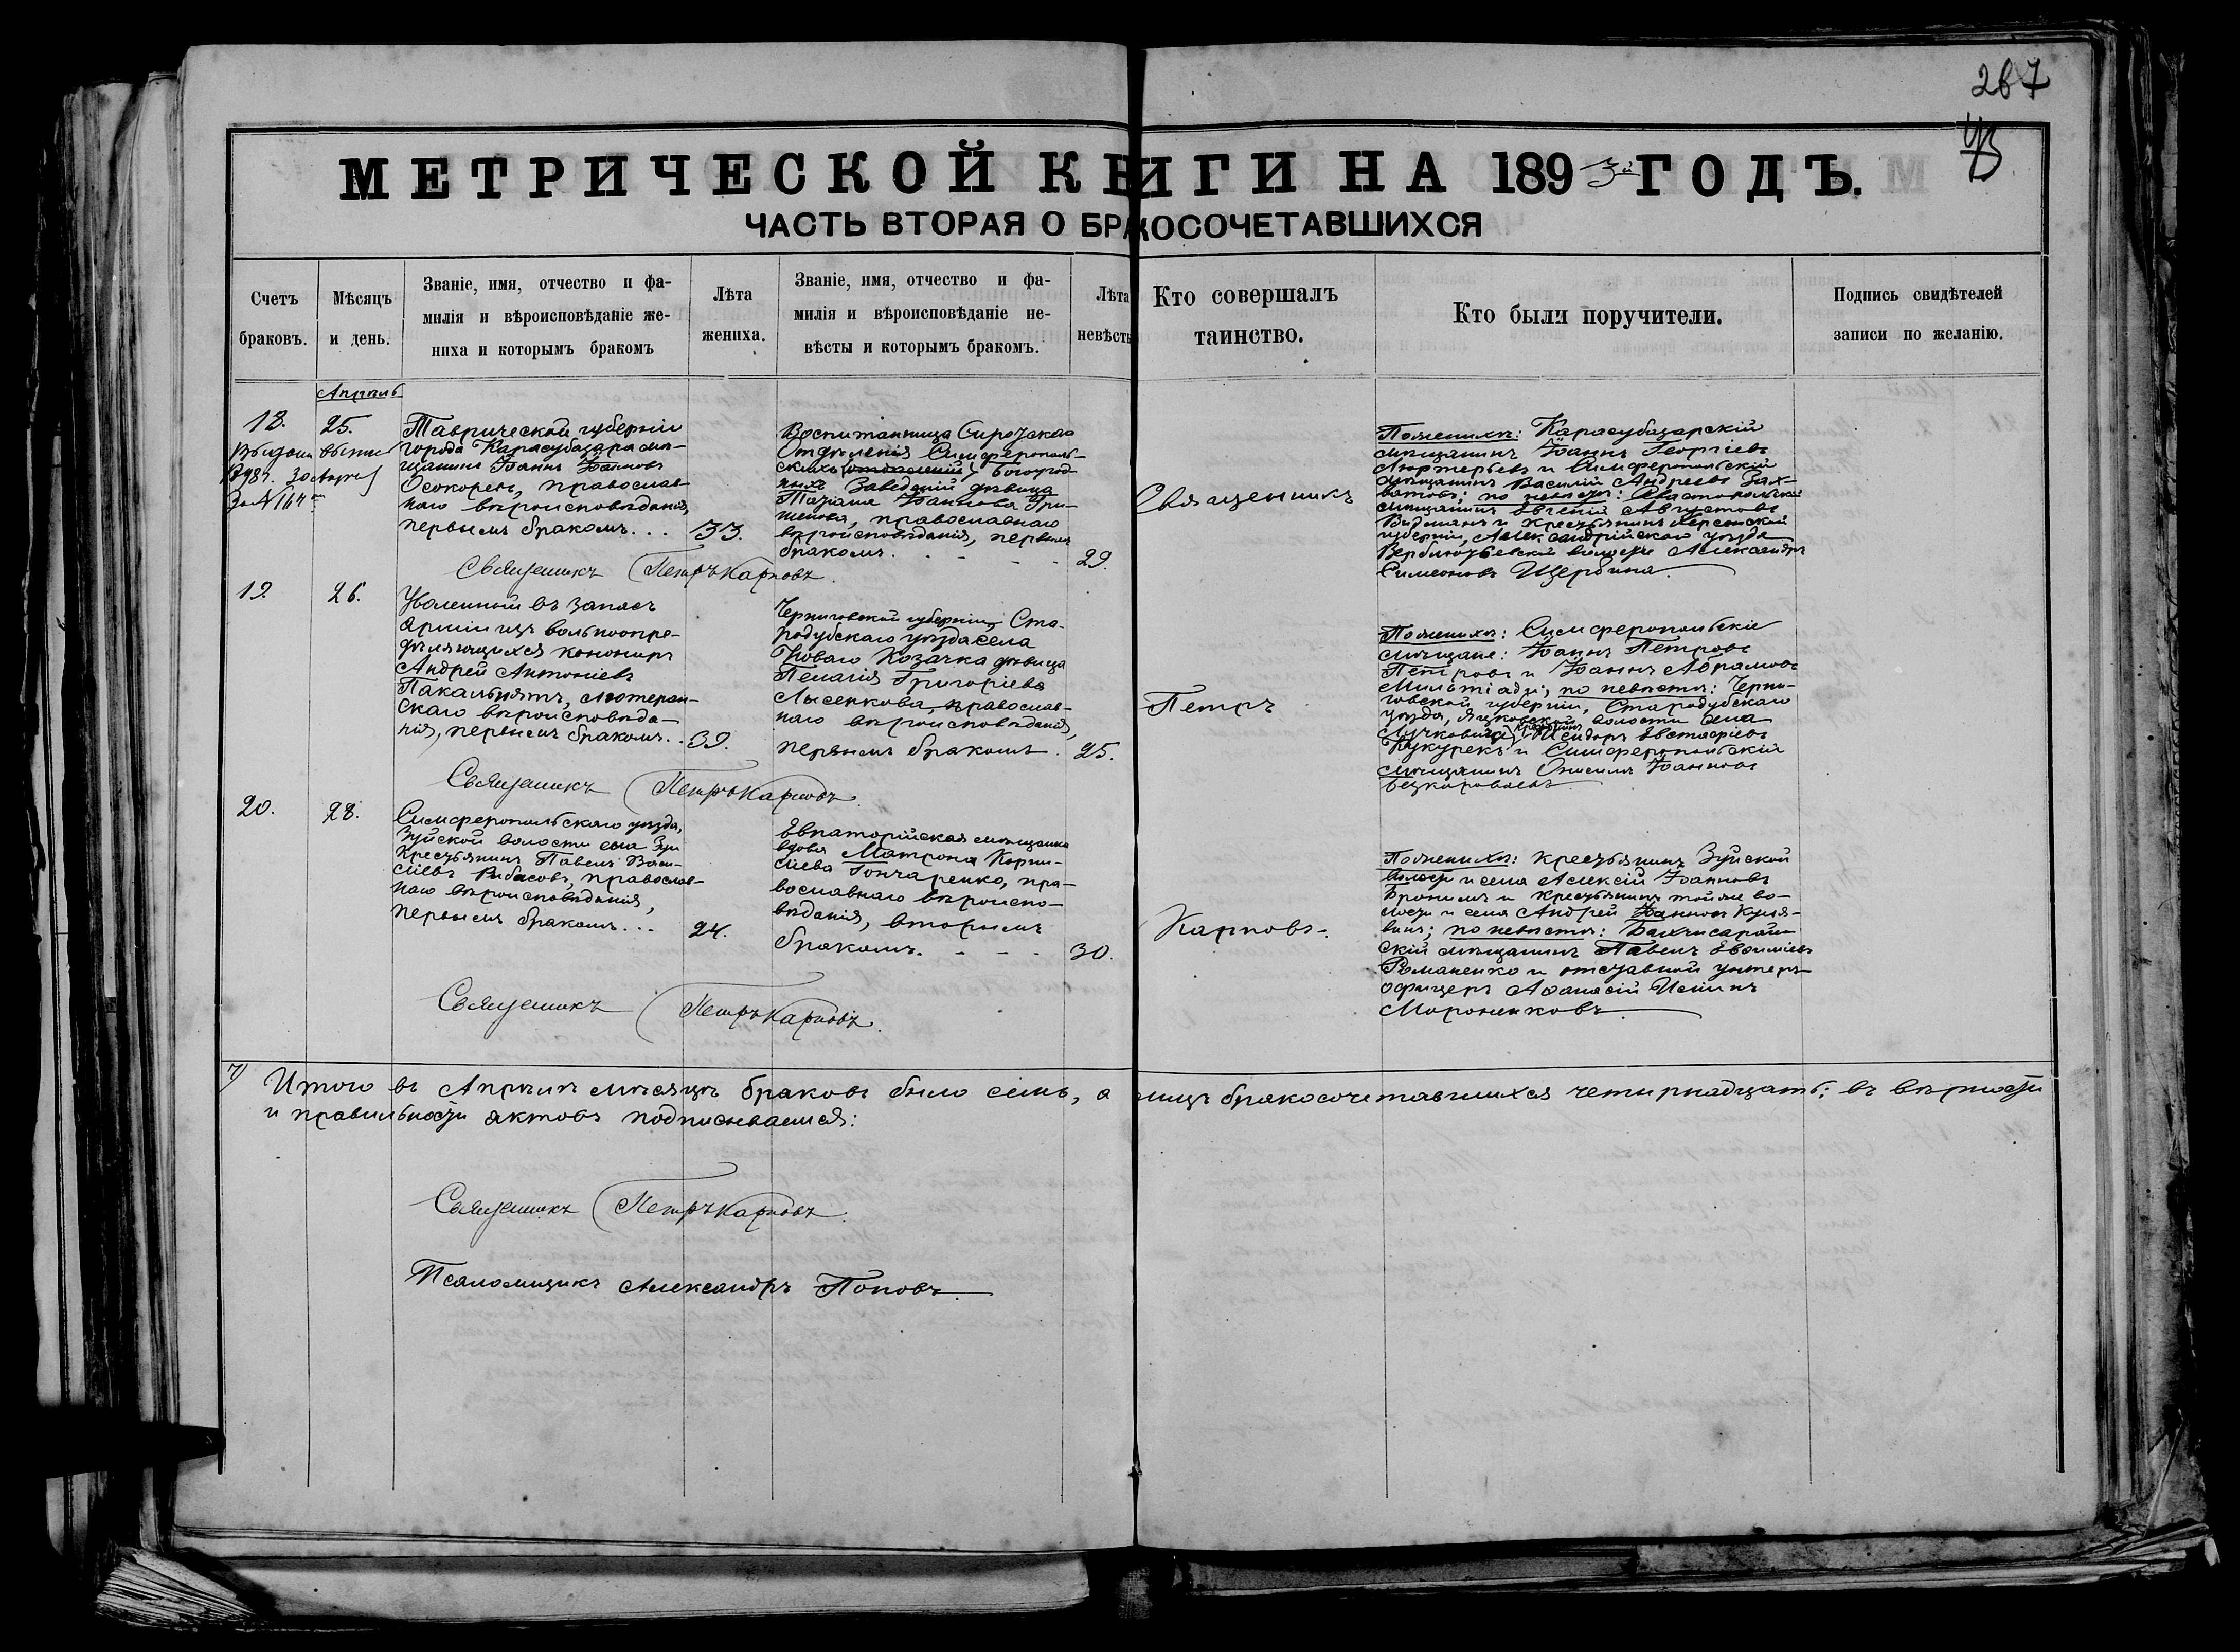 267
МЕТРИЧЕСКОЙ КНИГИ НА 1893й ГОДЪ.
ЧАСТЬ ВТОРАЯ О БРАКОСОЧЕТАВШИХСЯ
Счетъ браковъ.
Мѣсяцъ и день.
Званіе, имя, отчество и фа-
милія и вѣроисповѣданіе же-
ниха и которымъ бракомъ
Лѣта жениха.
Званіе, имя, отчество и фа-
милія и вѣроисповѣданіе не-
вѣсты и которымъ бракомъ.
Лѣта невѣсты
Кто совершалъ
таинство.
Кто были поручители.
Подпись свидѣтелей
записи по желанію.
Апрѣль
18.
25.
Таврической губерніи
города Карасубазара мѣ-
щанинъ Іоаннъ Іоанновъ
Осокоревъ, православ-
наго вѣроисповѣданія,
первымъ бракомъ...
33.
Воспитанница Сиротскаго
Отдѣленія Симферополь-
скихъ Богоугод-
ныхъ Заведеній дѣвица
Татіана Іоаннова Гри-
шкова, православнаго
вѣроисповѣданія, первымъ
бракомъ. - - -
29.
Священникъ
По женихѣ: Карасубазарскій
мѣщанинъ Іоаннъ Георгіевъ
и Симферопольскій
мѣщанинъ Василій Андреевъ Зах-
ватовъ; по невѣстѣ: Севастопольскій
мѣщанинъ Евгеній Августовъ
Видманъ и крестьянинъ Херсонской
губерніи, Александрійскаго уѣзда
Верблюжской волости Александръ
Симеоновъ Щербина.
Священникъ Петръ Карповъ.
19.
26.
Уволенный въ запасъ
арміи изъ вольноопре-
дѣляющихся канониръ
Андрей Антоніевъ
Пакальнятъ, лютеран-
скаго вѣроисповѣда-
нія, первымъ бракомъ..
39.
Черниговской губерніи, Ста-
родубскаго уѣзда села
Новаго Козачка дѣвица
Пелагія Григоріева
Лысенкова, православ-
наго вѣроисповѣданія,
первымъ бракомъ.
25.
Петръ
По женихѣ: Симферопольскіе
мѣщане: Іоаннъ Петровъ
Петровъ и Іоаннъ Абрамовъ
Мильтіади; по невѣстѣ: Черни-
говской губерніи, Стародубскаго
уѣзда, волости села
Исидоръ Евстафіевъ
Кукурекъ и Симферопольскій
мѣщанинъ Онисимъ Іоанновъ
Безкоровайнъ
Священникъ Петръ Карповъ.
20.
28.
Симферопольскаго уѣзда,
Зуйской волости села Зуи
крестьянинъ Павелъ Васи-
ліевъ Рибасовъ, православ-
наго вѣроисповѣданія,
первымъ бракомъ...
24.
Евпаторійская мѣщанка
вдова Матрона Корни-
ліева Гончаренко, пра-
вославнаго вѣроиспо-
вѣданія, вторымъ
бракомъ. - - -
30.
Карповъ.
По женихѣ: крестьянинъ Зуйской
волости и села Алексій Іоанновъ
и крестьянинъ той же во-
лости и села Андрей Іоанновъ Куля-
винъ; по невѣстѣ: Бахчисарай-
скій мѣщанинъ Павелъ Евѳиміевъ
Романенко и отставной унтеръ-
офицеръ Аѳанасій
Мироненковъ.
Священникъ Петръ Карповъ.
7) Итого въ Апрѣлѣ мѣсяцѣ браковъ было семь, а лицъ бракосочетавшихся четырнадцать; въ вѣрности
и правильности актовъ подписываемся:
Священникъ Петръ Карповъ.
Псаломщикъ Александръ Поповъ.